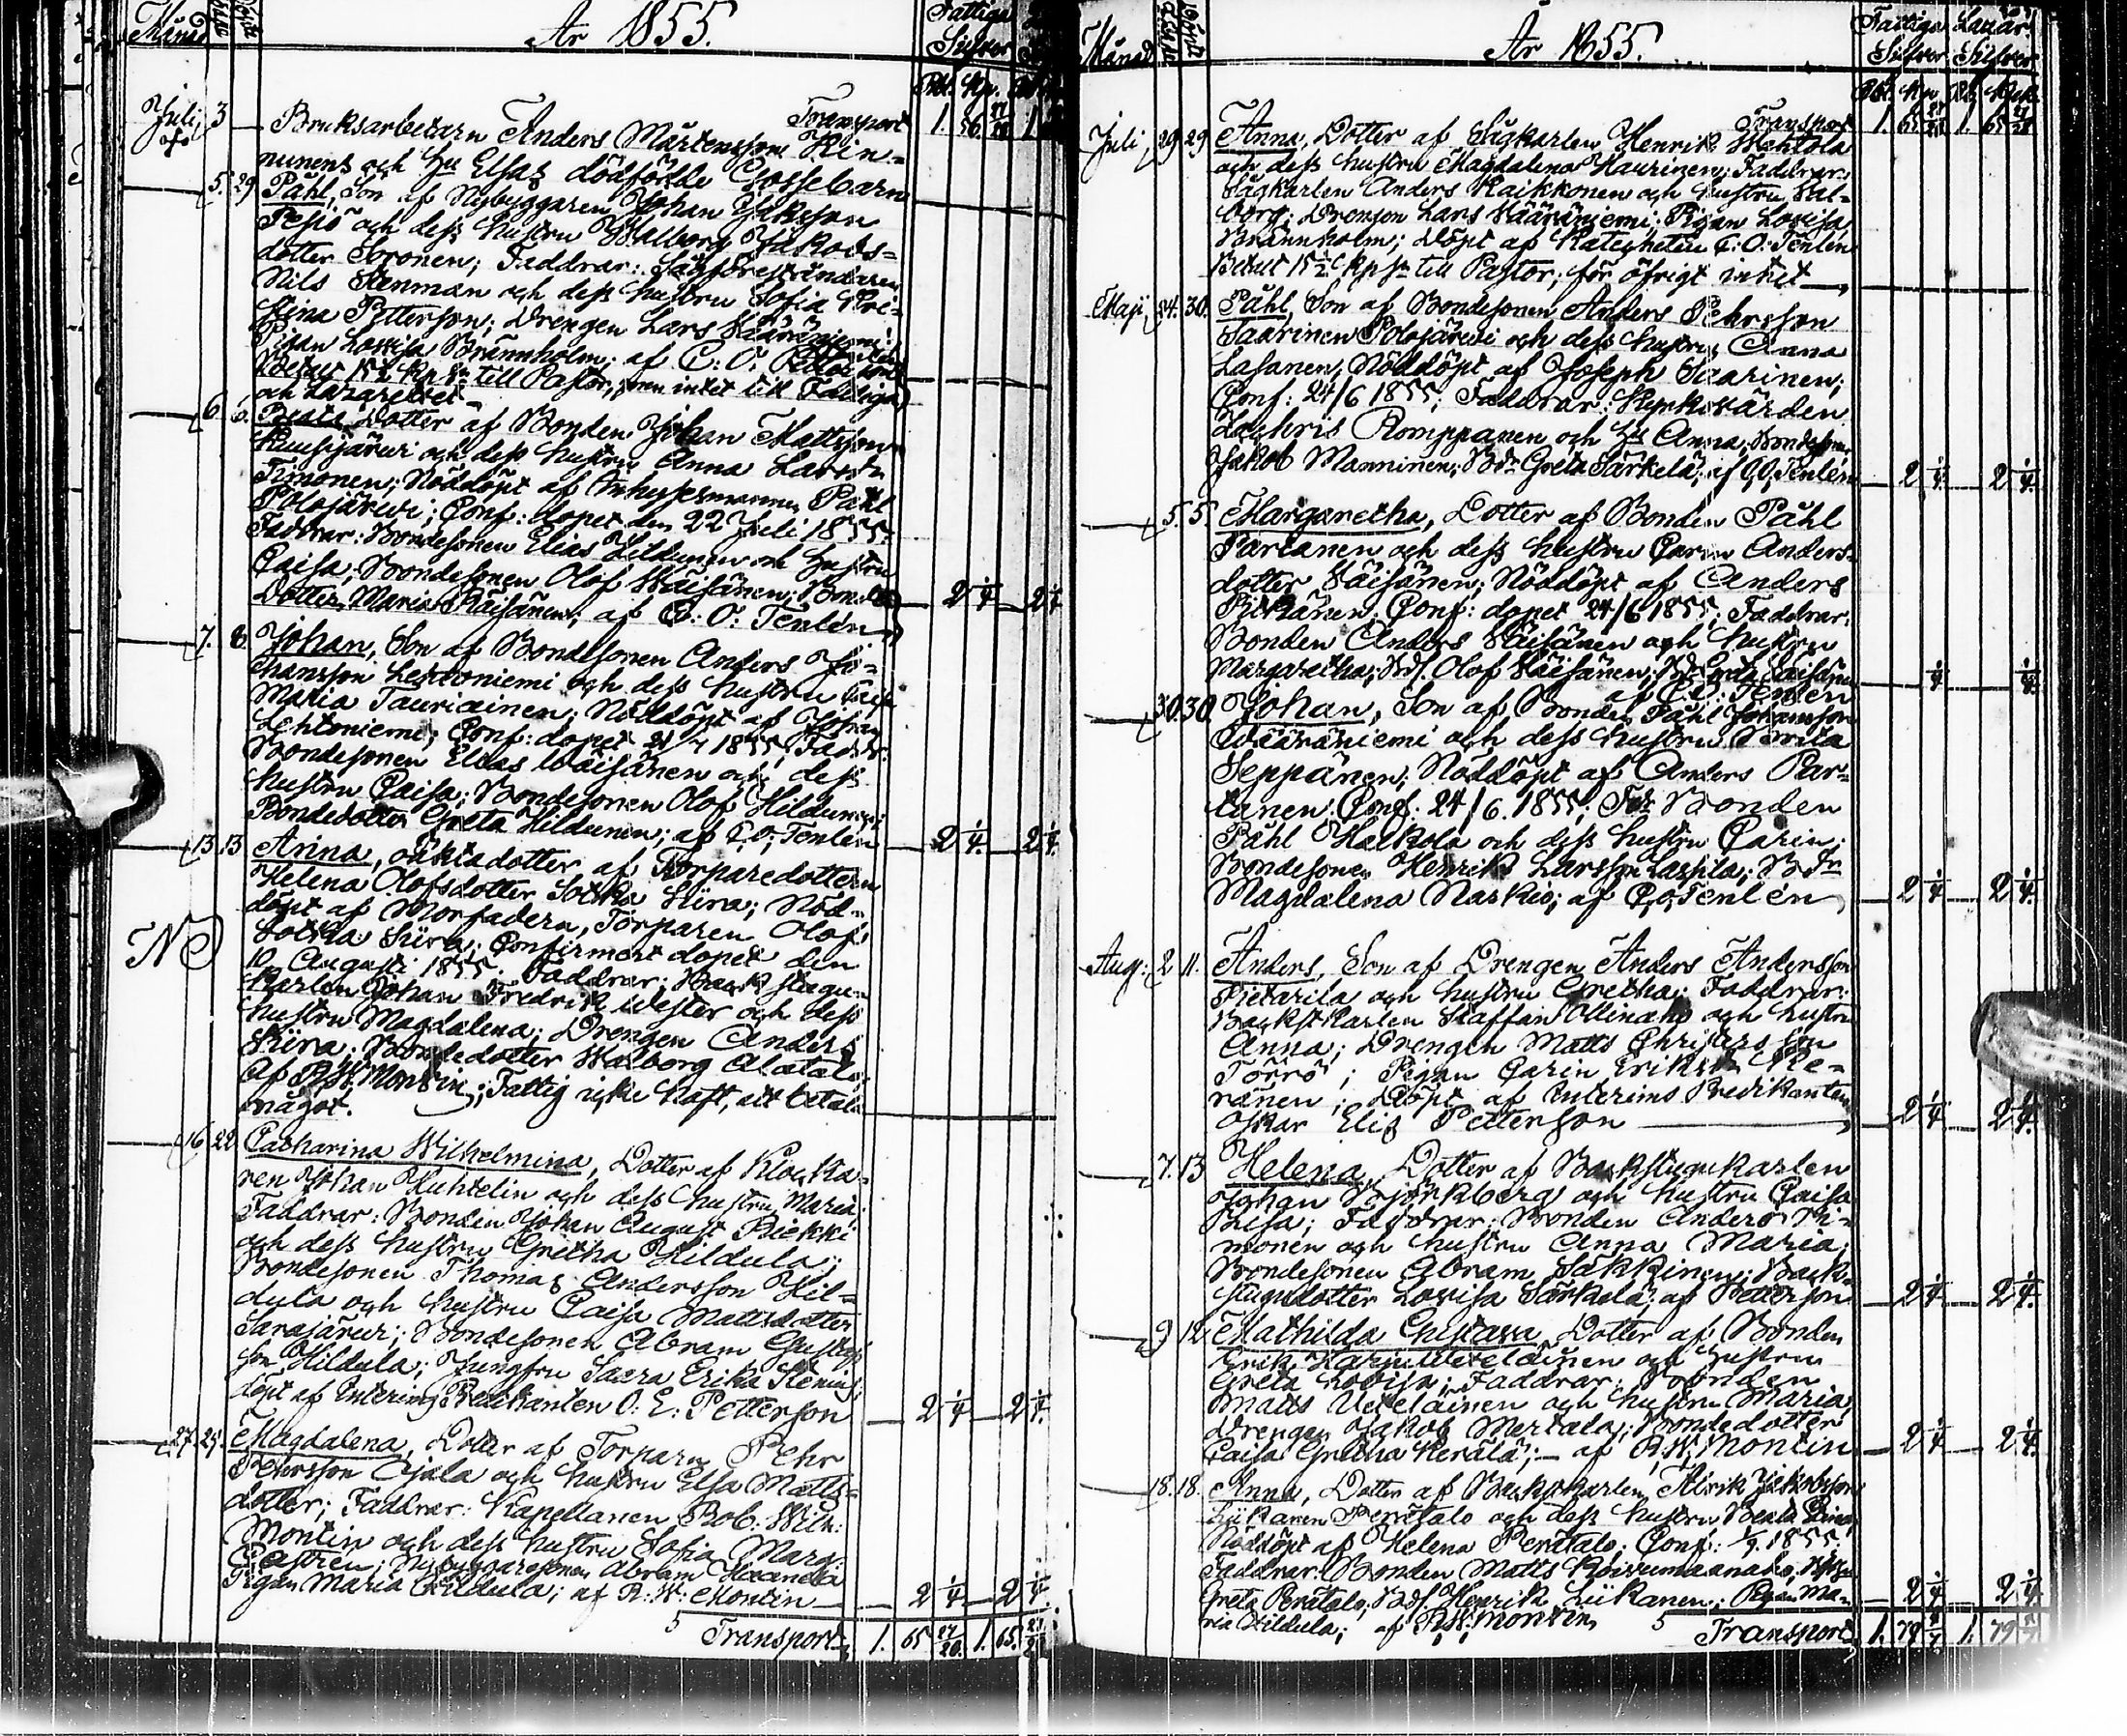 Månad År 1855. Fattiga Silfver
Rdr. Kp.
Transport 1. 56. 27/28 1
Juli 3 Bruksarbetarn Anders Mårtensson Kin-
nunens och Hu Elsas dödfödde Gossebarn
5. 29 Påhl, Son af Nybyggaren Johan Johnsson
Pesiö och dess hustru Walborg Jakobs-
dotter Soronen; Faddrar: Sågföreståndaren
Nils Stenman och dess hustru Sofia Kri-
stina Petterson; Drengen Lars Wääräniemi;
Pigan Lovisa Brännholm; af C: O:
Betalt 15 1/2 kp Sr till Pastor, men intet till Fattiga
och Lazarettet
6 6. Beata Dotter af Bonden Johan Mattsson
Kuusijärwi och dess hustru Anna Larsdr
Timonen; Nöddöpt af Inhysesmannen Påhl
Polojärwi; Conf: dopet den 22 Juli 1855.
Faddrar: Bondesonen Elias Hildunen och Hustru
Caisa; Bondesonen Olof Wäisänen; Bonde
Dotter Maria Räisänen; af C: O: Tenlén 2 1/4 2 1/4
7. 8. Johan, Son af Bondesonen Anders Jo-
hansson Lehtoniemi och dess hustru Caisa
Maria Tauriainen; Nöddöpt af Johan
Lehtoniemi; Conf: dopet 21/7 1855; Faddr:
Bondesonen Elias Wäisänen och dess
hustru Caisa; Bondesonen Olof Hildunen;
Bondedotter Greta Hildunen; af C. O. Tenlén 2 1/4 2 1/4
13 13 Anna, oäkta dotter af Torparedottern
Helena Olofsdotter Sotka Siira; Nöd-
döpt af Morfadern, Torparen Olof
NB Sotka Siira; Confirmert dopet den
10 Augusti 1855. Faddrar: Backstugu-
Karlen Johan Fredrik Wester och dess
hustru Magdalena; Drengen Anders
Siira; Bondedotter Walborg Alatalo;
af R. W. Montin; Fattig icke haft, att betala
något.
16 22 Catharina Wilhelmina, Dotter af Klocka-
ren Johan Huhtelin och dess hustru Maria;
Faddrar: Bonden Johan August Riekki
och dess hustru Gretha Hildula;
Bondesonen Thomas Andersson Hil-
dula och hustru Caisa Mattsdotter
Sarajärwi; Bondesonen Abram Gustafs
son Hildula; Jungfru Saara Erika Heming;
döpt af Interims Predikanten O: E: Petterson 2 1/4 2 1/4
27 29. Magdalena, Dotter af Torparn Pehr
Pehrsson Ojala och hustru Elsa Matts-
dotter; Faddrar: Kapellanen Rob: Wilh:
Montin och dess hustru Sofia Marg:
Castrén; Nybyggaresonen Abram Haanela
Pigan Maria Hildula; af R: W: Montin 2 1/4 2 1/4
5 Transport 1. 65 27/28 1. 65. 27/28
Månad År 1855. Fattiga Silfver Lazar: Silfver
Transport 1. 65 27/28 1. 65 27/28
Juli 29 29 Anna, Dotter af Sågkarlen Henrik Mehtola
och dess hustru Magdalena Haurinen; Faddrar:
Sågkarlen Anders Kaikkonen och hustru Wal-
borg; Drengen Lars Wääräniemi; Pigan Lovisa
Brännholm; döpt af Katecheten C: O: Tenlén
Betalt 15 1/2 kp Sr till Pastor; för öfrigt intet
Maji 24. 30. Påhl, Son af Bondesonen Anders Pehrsson
Saarinen Polojärwi och dess hustru Anna
Lasanen; Nöddöpt af Joseph Saarinen;
Conf: 24/6 1855; Faddrar: Kyrkovärden
Zachris Romppanen och Hu Anna; Bondesonen
Jakob Manninen; Bdr Greta Särkelä; af C. O. Tenlén 2 1/4 2 1/4
5. 5. Margaretha, Dotter af Bonden Påhl
Partanen och dess hustru Carin Anders-
dotter Väisänen; Nöddöpt af Anders
Pitkänen; Conf: dopet 24/6 1855; Faddrar:
Bonden Anders Väisänen och hustru
Margaretha; Bds. Olof Väisänen; Bdr Greta Väisänen
af C. O. Tenlén 1/4 1/4
30. 30 Johan, Son af Bonden Påhl Johansson
Wääräniemi och dess hustru Brita
Seppänen; Nöddöpt af Anders Par-
tanen; Conf: 24/6. 1855; Fdr Bonden
Påhl Halkola och dess hustru Carin;
Bondesonen Henrik Larsson Lassila; B Dr
Magdalena Naskio; af C. O. Tenlén 2 1/4 2 1/4
Aug: 2 11. Anders, Son af Drengen Anders Andersson
Pietarila och hustru Gretha; Faddrar:
Backstkarlen Staffan Ollinaho och hustru
Anna; Drengen Matts Christersson
Törrö; Pigan Carin Eriksdr Ke-
ränen; Döpt af Interims Predikanten
Oskar Elis Petterson 2 1/4 2 1/4
7. 13 Helena, Dotter af Backstugukarlen
Johan Björkberg och hustru Caisa
Resa; Faddrar: Bonden Anders Ti-
monen och hustru Anna Maria;
Bondesonen Abram Säkkinen; Back-
stugudotter Lovisa Särkelä; af Petterson 2 1/4 2 1/4
9 12 Mathilda Gustava, Dotter af Bonden
Erik Harju Weteläinen och hustru
Greta Lovisa; Faddrar: Bonden
Matts Veteläinen och hustru Maria
Drengen Jakob Mertala; Bondedotter
Caisa Gretha Kerälä; af R. W. Montin 2 1/4 2 1/4
18. 18. Anna, Dotter af Backstkarlen Henrik Jakobsson
Liikanen Perätalo och dess hustru Beata Stina
Nöddöpt af Helena Perätalo; Conf: 1/9. 1855.
Faddrar: Bonden Matts Koivumaanaho, Hustru
Greta Perätalo; Bds. Henrik Liikanen; Pigan Ma-
ria Hildula; af R. W. Montin 2 1/4 2 1/4
5 Transport 1. 79 1. 79